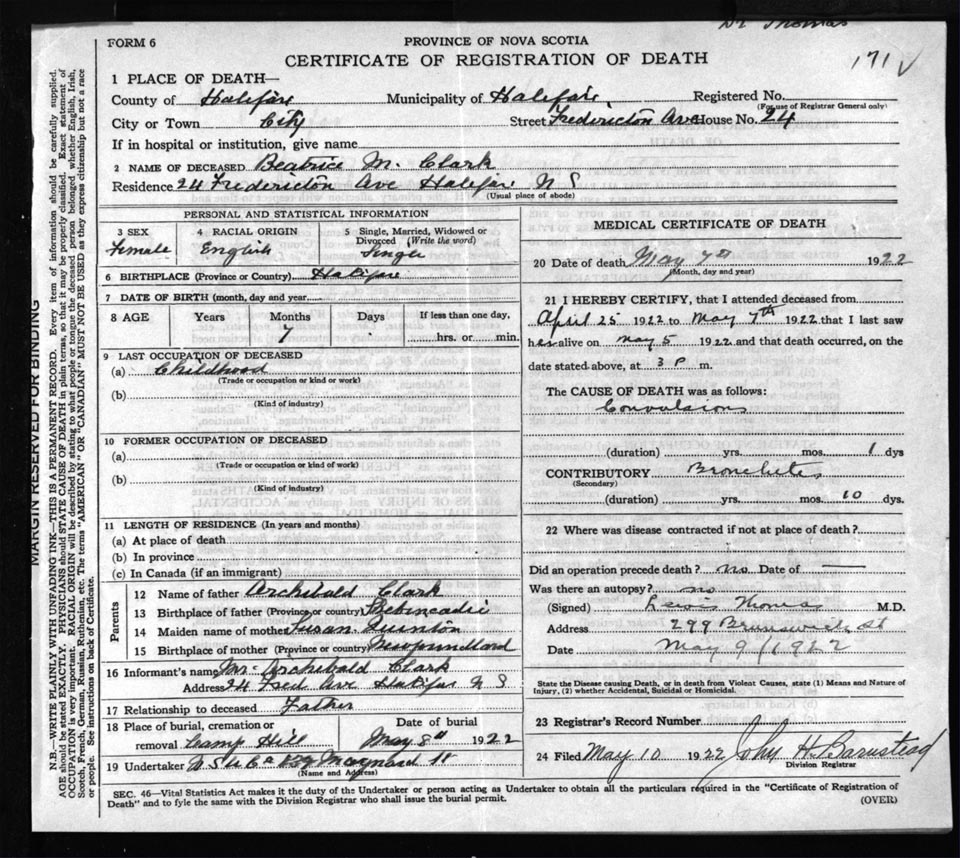 Dr Thomas
FORM 6
PROVINCE OF NOVA SCOTIA
CERTIFICATE OF REGISTRATION OF DEATH
171 V
1 PLACE OF DEATH—
County of Halifax Municipality of Halifax Registered No.
(For use of Registrar General only)
City or Town City Street Fredericton Ave House No. 24
If in hospital or institution, give name
2 NAME OF DECEASED Beatrice M. Clark
Residence 24 Fredericton Ave Halifax N S
(Usual place of abode)
PERSONAL AND STATISTICAL INFORMATION
3 SEX Female
4 RACIAL ORIGIN English
5 Single, Married, Widowed or Divorced (Write the word) Single
6 BIRTHPLACE (Province or Country) Halifax
7 DATE OF BIRTH (month, day and year)
8 AGE Years Months Days If less than one day,
7 hrs. or min.
9 LAST OCCUPATION OF DECEASED
(a) Childhood
(Trade or occupation or kind or work)
(b)
(Kind of industry)
10 FORMER OCCUPATION OF DECEASED
(a)
(Trade or occupation or kind or work)
(b)
(Kind of industry)
11 LENGTH OF RESIDENCE (In years and months)
(a) At place of death
(b) In province
(c) In Canada (if an immigrant)
Parents
12 Name of father Archibald Clark
13 Birthplace of father (Province or country)
14 Maiden name of mother Susan Quinton
15 Birthplace of mother (Province or country) Newfoundland
16 Informant's name Mr. Archibald Clark
Address 24 Fred Ave Halifax N S
17 Relationship to deceased Father
18 Place of burial, cremation or removal Camp Hill
Date of burial May 8th 1922
19 Undertaker Maynard St
(Name and Address)
MEDICAL CERTIFICATE OF DEATH
20 Date of death May 7th 1922
(Month, day and year)
21 I HEREBY CERTIFY, that I attended deceased from
April 25 1922 to May 7th 1922 that I last saw
her alive on May 5 1922 and that death occurred, on the
date stated above, at 3 P m.
The CAUSE OF DEATH was as follows:
Convulsions
(duration) yrs. mos. 1 dys
CONTRIBUTORY Bronchitis
(Secondary)
(duration) yrs. mos. 10 dys.
22 Where was disease contracted if not at place of death?
Did an operation precede death? no Date of —
Was there an autopsy? no
(Signed) Lewis Thomas M.D.
Address 299 Brunswick St
Date May 9/1922
State the Disease causing Death, or in death from Violent Causes, state (1) Means and Nature of
Injury, (2) whether Accidental, Suicidal or Homicidal.
23 Registrar's Record Number
24 Filed May 10 1922 John H. Barnstead
Division Registrar
SEC. 46—Vital Statistics Act makes it the duty of the Undertaker or person acting as Undertaker to obtain all the particulars required in the "Certificate of Registration of
Death" and to fyle the same with the Division Registrar who shall issue the burial permit.
(OVER)
MARGIN RESERVED FOR BINDING
N.B.—WRITE PLAINLY WITH UNFADING INK—THIS IS A PERMANENT RECORD. Every item of information should be carefully supplied.
AGE should be stated EXACTLY. PHYSICIANS should STATE CAUSE OF DEATH in plain terms, so that it may be properly classified. Exact statement of
OCCUPATION is very important. RACIAL ORIGIN will be described by stating to what people or tongue the deceased person belonged, whether English, Irish,
Scotch, French, German, Russian, Ruthenian, etc. The terms "AMERICAN" or "CANADIAN" MUST NOT BE USED as they express citizenship but not a race
or people. See instructions on back of Certificate.